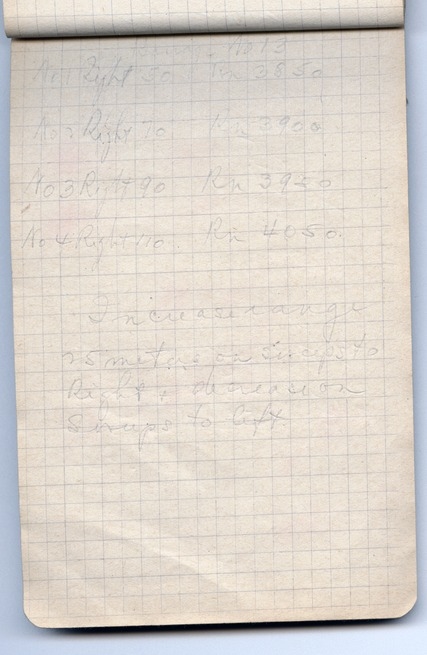 No 13
No 1 Right 50 Rn 3850
No 2 Right 70 Rn 3900
No 3 Right 90 Rn 3950
No 4 Right 110. Rn 4050.
Increase range
25 meters on sweeps to
Right & decrease on
Sweeps to left